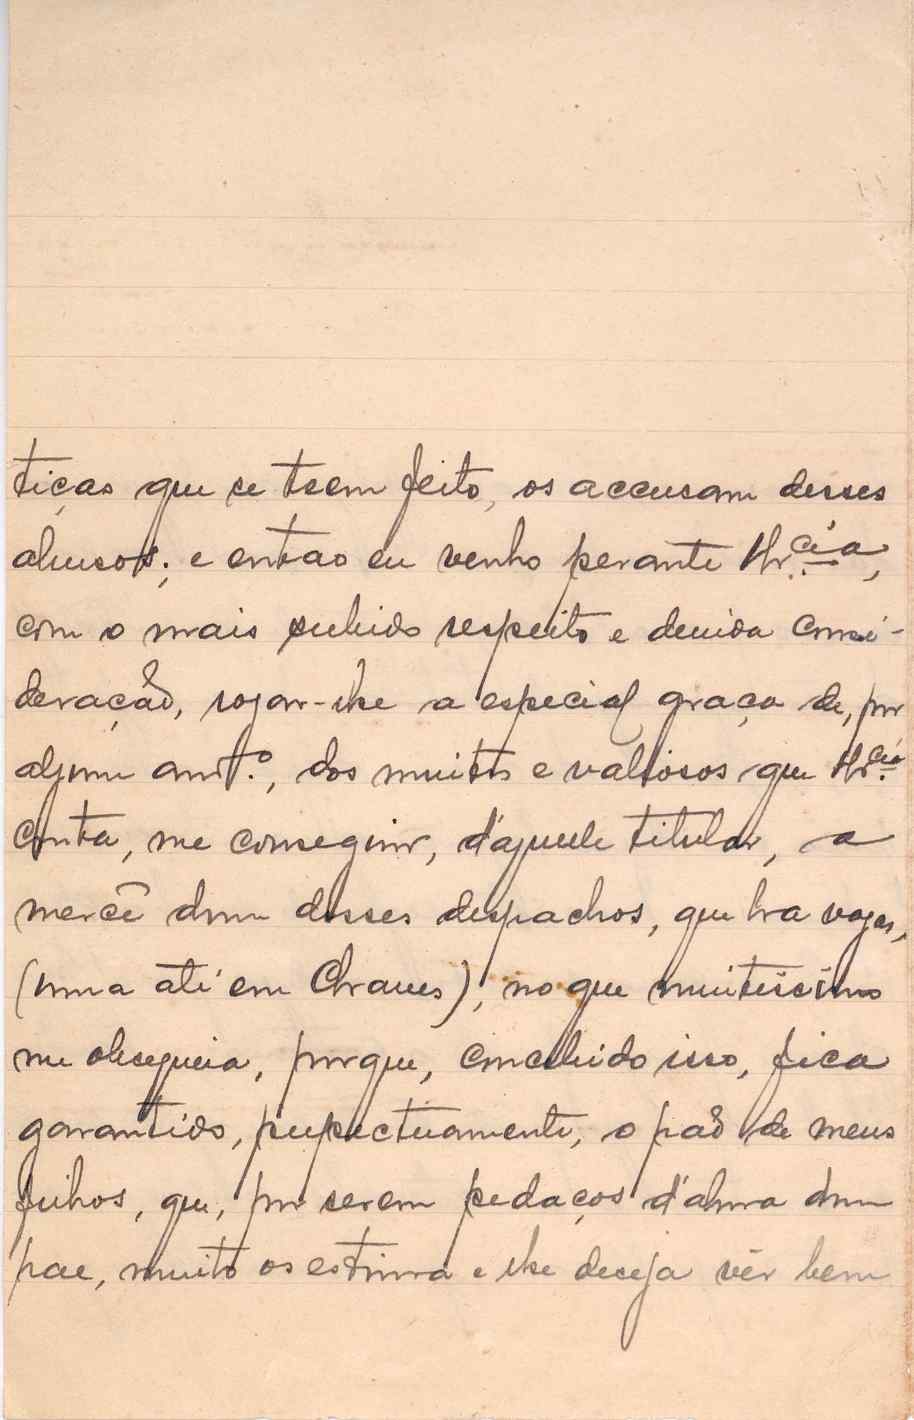 tiças que se teem feito, os accusam desses
abusos; e então eu venho perante V.ª Ex.cia,
com o mais subido respeito e devida consi-
deração, rogar-lhe a especial graça de, por
algum am.º, dos muitos e valiosos que
conta, me conseguir, d'aquele titular, a
mercê dum desses despachos, que ha vagas,
(uma até em Chaves), no que muitissimo
me obsequeia, porque, concebido isso, fica
garantido, perpectuamente, o pão de meus
filhos, que, por serem pedaços d'alma dum
pae, muito os estima e lhe deseja vêr bem